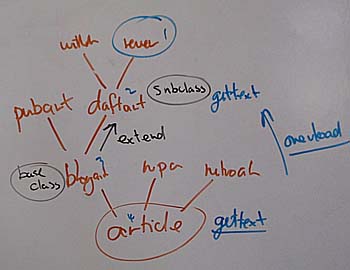 rever 1
pubart daftart 2 subclass gettext
extend overload
base class blogart 3
article 4 gettext